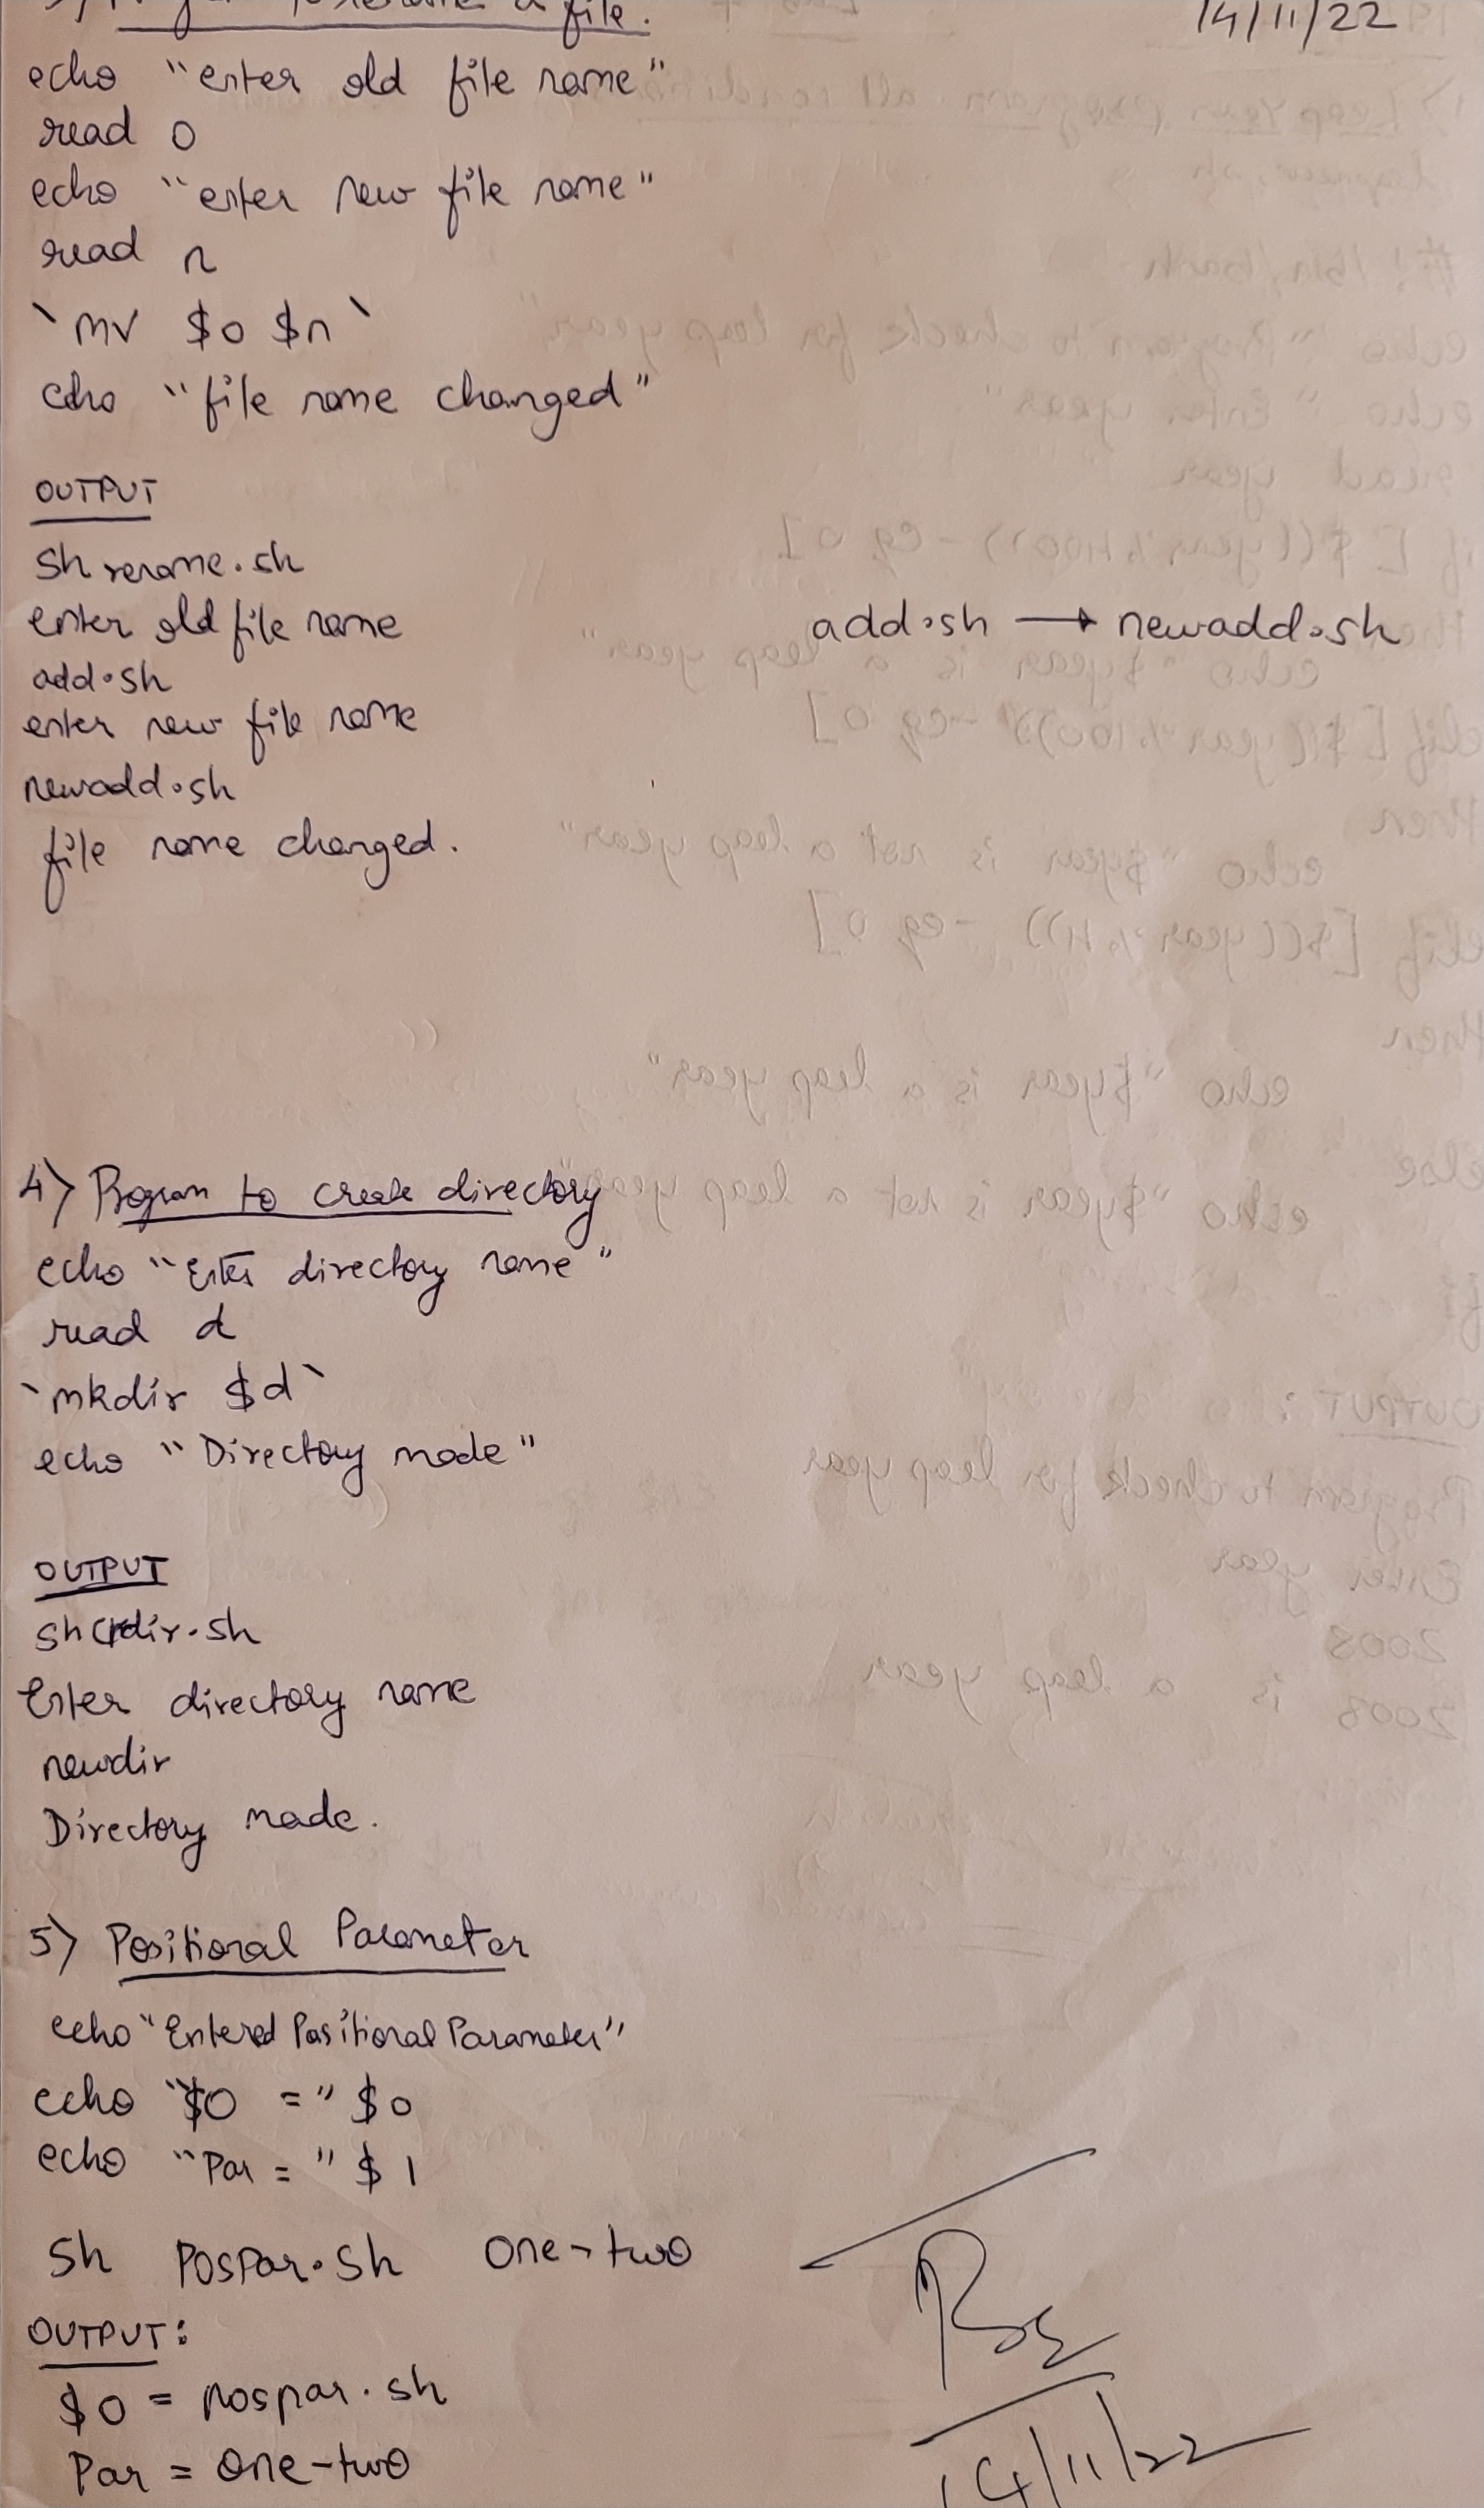 to rename a file.
14/11/22
echo "enter old file name"
read o
echo "enter new file name"
read n
`mv $o $n`
echo "file name changed"
OUTPUT
sh rename.sh
enter old file name
add.sh → newadd.sh
add.sh
enter new file name
newadd.sh
file name changed.
4) Program to create directory
echo "Enter directory name"
read d
`mkdir $d`
echo "Directory made"
OUTPUT
sh crdir.sh
Enter directory name
newdir
Directory made.
5) Positional Parameter
echo "Entered Positional Parameter"
echo "$0 =" $0
echo "Par = " $1
sh pospar.sh one-two
OUTPUT:
$0 = pospar.sh
Par = one-two
14/11/22